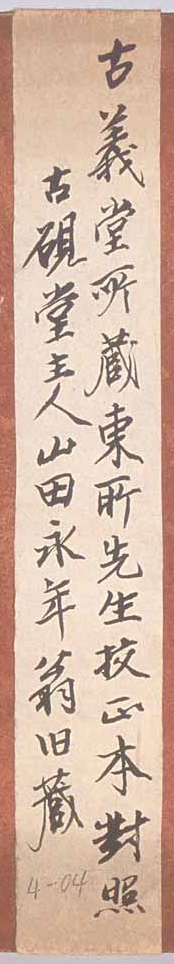 古義堂所蔵東所先生校正本對照
古硯堂主人山田永年翁旧蔵
4-04